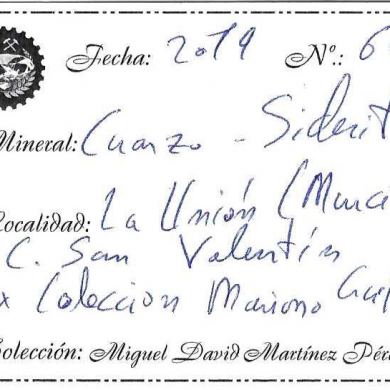 Fecha: 2019 Nº.: 6
Mineral: Cuarzo - Siderit
Localidad: La Unión (Murci
C. San Valentín
x Coleccion Mariano
Colección: Miguel David Martínez Pér